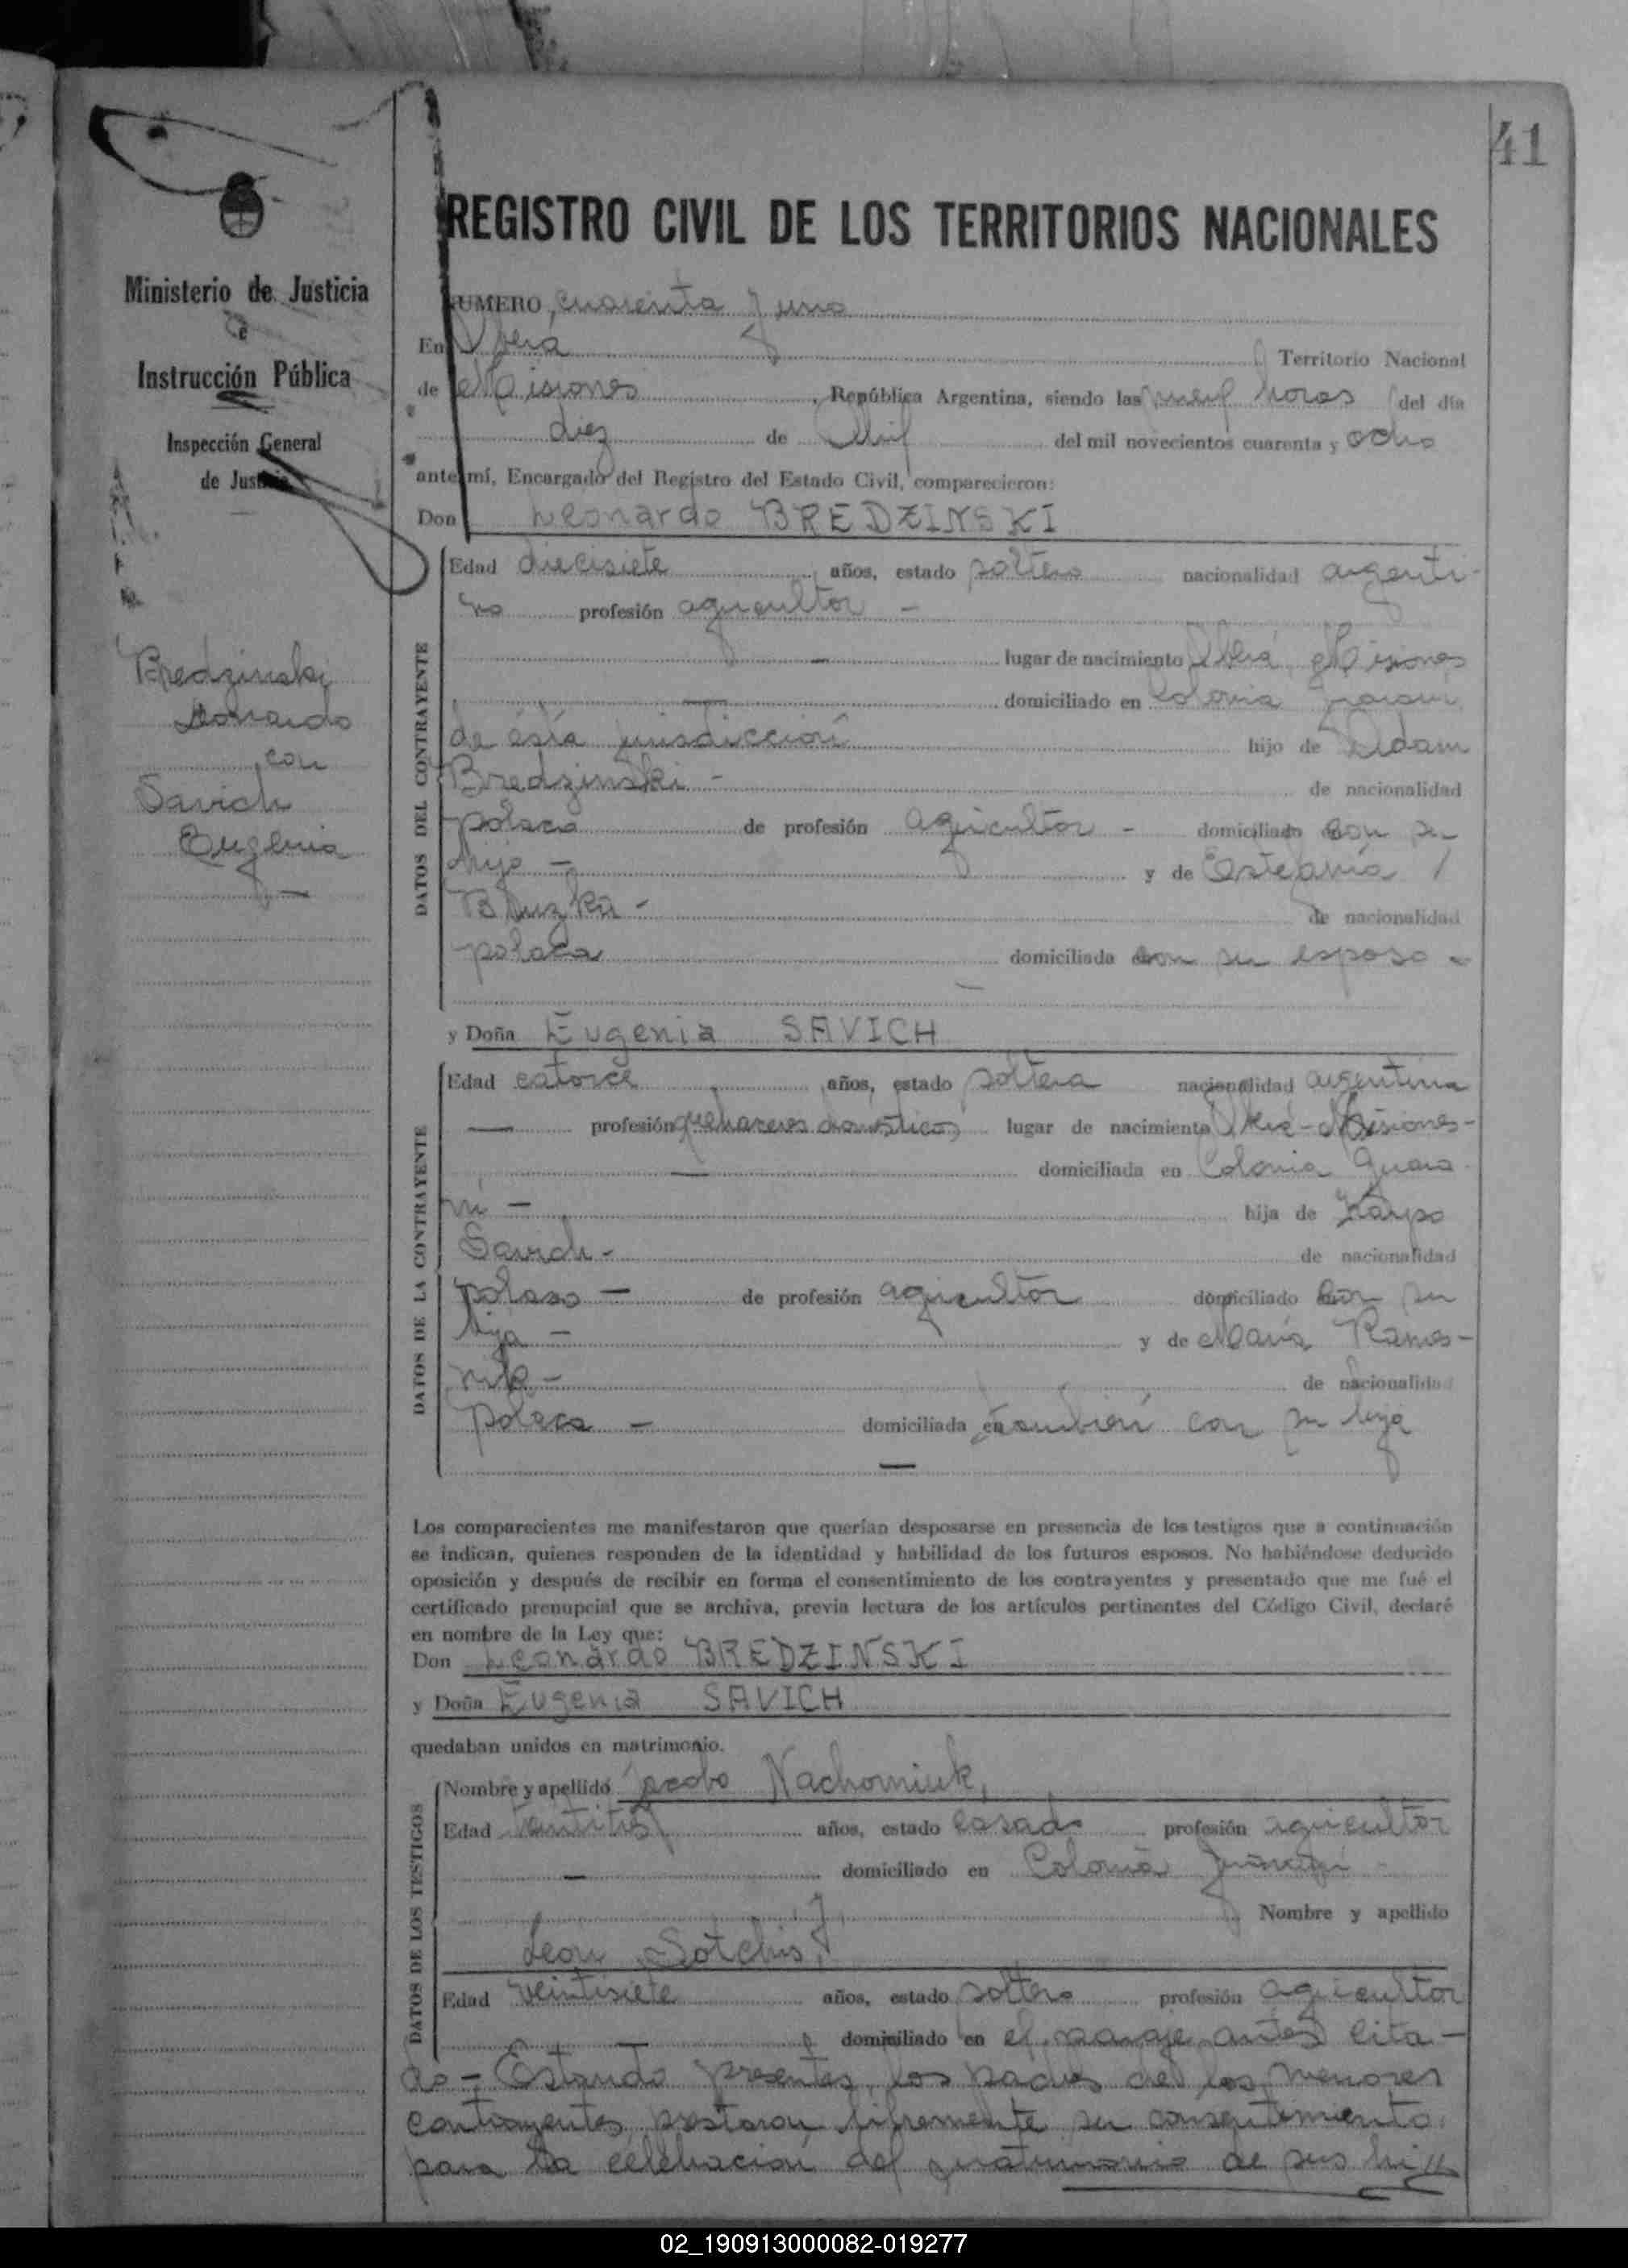 41
REGISTRO CIVIL DE LOS TERRITORIOS NACIONALES
Ministerio de Justicia
é
Instrucción Pública
Inspección General
de Justicia
Bredzinski
Leonardo
con
Savich
Eugenia
NUMERO cuarenta y uno
En Oberá Territorio Nacional
de Misiones, República Argentina, siendo las nueve horas del día
diez de Abril del mil novecientos cuarenta y ocho
ante mí, Encargado del Registro del Estado Civil, comparecieron:
Don Leonardo BREDZINSKI
DATOS DEL CONTRAYENTE
Edad diecisiete años, estado soltero nacionalidad argenti-
no profesión agricultor -
lugar de nacimiento Oberá, Misiones
domiciliado en Colonia Guaraní,
de ésta jurisdicción hijo de Adam
Bredzinski - de nacionalidad
polaca de profesión agricultor - domiciliado con su
hijo - y de Estefanía
de nacionalidad
polaca domiciliada con su esposo -
y Doña Eugenia SAVICH
DATOS DE LA CONTRAYENTE
Edad catorce años, estado soltera nacionalidad argentina
profesión quehaceres domésticos lugar de nacimiento Oberá - Misiones -
domiciliada en Colonia Guara
ní - hija de Karpo
Savich - de nacionalidad
polaco - de profesión agricultor domiciliado con su
hija - y de María Roma-
niuk - de nacionalidad
polaca - domiciliada en también con su hija
Los comparecientes me manifestaron que querían desposarse en presencia de los testigos que a continuación
se indican, quienes responden de la identidad y habilidad de los futuros esposos. No habiéndose deducido
oposición y después de recibir en forma el consentimiento de los contrayentes y presentado que me fué el
certificado prenupcial que se archiva, previa lectura de los artículos pertinentes del Código Civil, declaré
en nombre de la Ley que:
Don Leonardo BREDZINSKI
y Doña Eugenia SAVICH
quedaban unidos en matrimonio.
DATOS DE LOS TESTIGOS
Nombre y apellido Jacobo Nachorniuk,
Edad veintitrés años, estado casado profesión agricultor
domiciliado en Colonia Guaraní -
Nombre y apellido
Leon Sotchis,
Edad veintisiete años, estado soltero profesión agricultor
domiciliado en el paraje antes cita-
do - Estando presentes los padres de los menores
contrayentes prestaron libremente su consentimiento
para la celebración del matrimonio de sus hijos
02_190913000082-019277